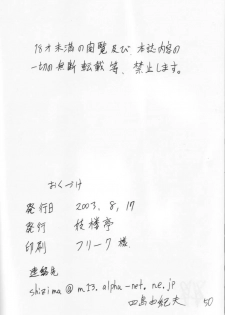 18才未満の閲覧及び本誌内容の
一切の無断転載等、禁止します。
おくづけ
発行日 2003. 8. 17
発行 伎楼亭
印刷 フリーク様
連絡先
shizima@m13.alpha-net.ne.jp
四島由紀夫
50